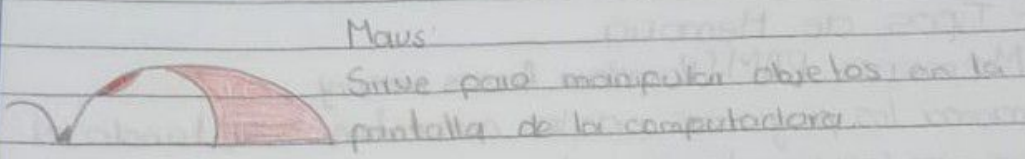 Maus
Sirve para manipular objetos en la
pantalla de la computadora